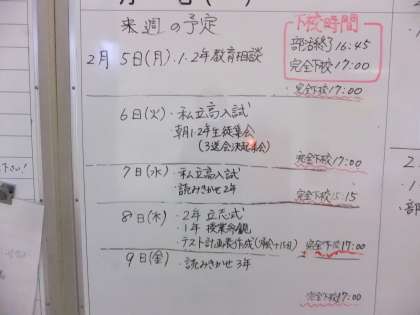 来週の予定
下校時間
部活終了16:45
完全下校17:00
2月5日(月)・1・2年教育相談
完全下校17:00
6日(火)・私立高入試
朝1・2年生徒集会
完全下校17:00
7日(水)・私立高入試
・読みきかせ2年
完全下校15:15
8日(木)・2年立志式
・1年授業参観
・テスト計画表作成
完全下校17:00
9日(金)・読みきかせ3年
完全下校17:00